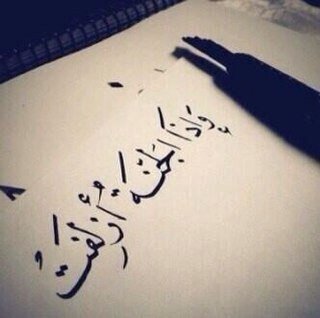 وَإِذَا الجَنَّةُ أُزْلِفَتْ